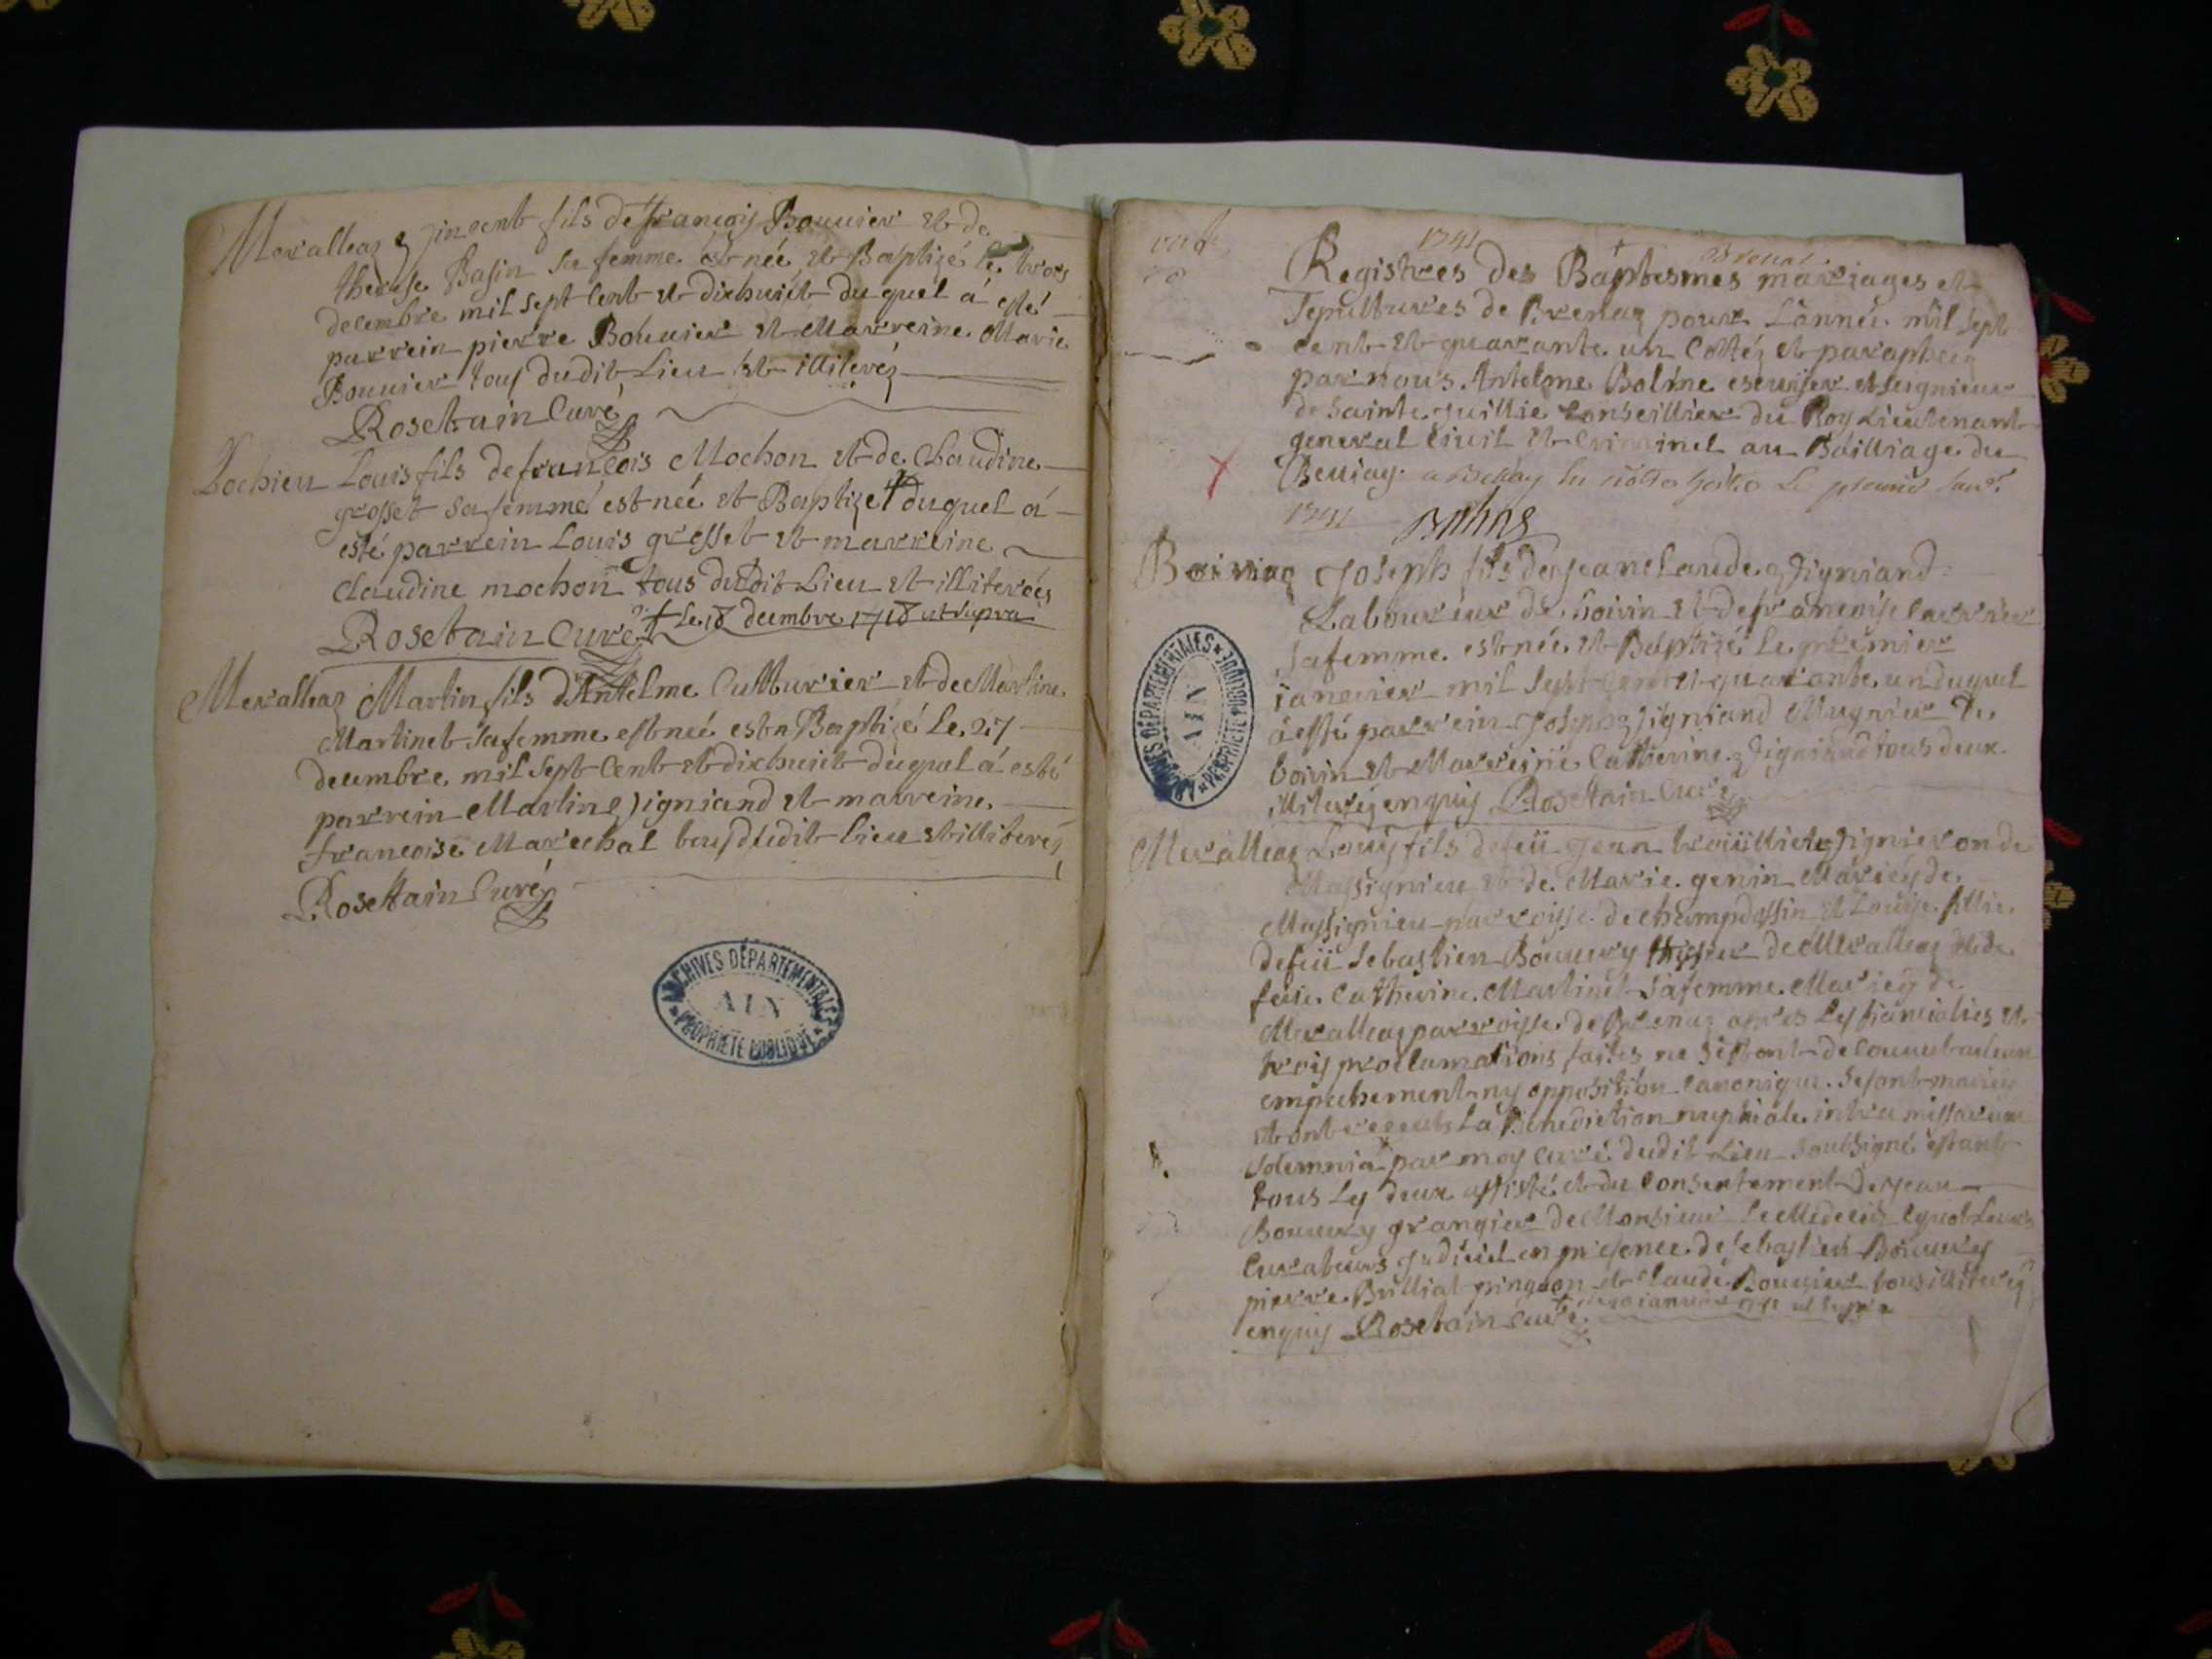 Meralleaz Vincent fils de françois Bouuier et de
therese Basin sa femme est née et Baptizé le trois
decembre mil sept cent et dixhuict du quel á esté
parrein pierre Bouuier et Marreine Marie
Bouuier tous dudit Lieu et illiterés
Rosetain Curé
Lochieu Louis fils de francois Mochon et de Claudine
grosset sa femme est neé et Baptize + duquel á
esté parrein Louis grosset et marreine
Claudine mochon tous dudit Lieu et illiterées
Rosetain Curé + Le 18 decembre 1718 ut supra
Meralleaz Martin fils dAntelme Cutturier et de Martine
Martinet sa femme est neé est Baptizé le 27
decembre mil sept Cent et dixhuict duquel á esté
parrein Martin Vigniand et marreine
francoise Marechal tous dudit lieu et illiterés
Rosettain Curé
ARCHIVES DÉPARTEMENTALES
AIN
PROPRIÉTÉ PUBLIQUE
1741
Brenaz
Registres des Baptesmes mariages et
Sepultures de Brenaz pour Lánneé mil sept
cent et quarante un Cottéz et paraphéez
par nous Antelme Balme escuijer et seignieur
de Sainte Juillie Conseillier du Roy Lieutenant
general Civil et Criminel au Bailliage du
Beujay a Belley
1741 Balme
Boirin Joseph fils de jean claude Vigniand
Laboureur de Boirin et de francoise Carrier
sa femme est neé et Baptizé le premier
ianevier mil sept Cent et quarante un duquel
á esté parrein Joseph Vigniand Mugnier de
boirin et Marreine Catherine Vigniand tous deux
illiteréz enquis Rosetain Curé
ARCHIVES DÉPARTEMENTALES
AIN
PROPRIÉTÉ PUBLIQUE
Meralleaz Louis fils de feü Jean Vignieron de
Massignieu et de Marie genin Mariéz de
Massignieu parroisse de champdossin et Louise fillie
de feü Sebastien Bouuery de Meralleaz et de
feüe Catherine Martinet sa femme Mariéz de
Meralleaz parroisse de Brenaz apres les fiancialies et
trois proclamations faites ne s'estant decouuert aucun
empechement ny opposition Canonique se sont mariés
et ont receus La Benediction nuptiale intra missarum
solemnia par moy Curé dudit Lieu soussigné estant
tous Les deux assisté et du Consentement de jean
Bouuery grangier de Monsieur le Medecin
Curateurs en presence de sebastien Bouuery
pierre Brilliat pingeon et Claude Bouuier tous illiteréz
enquis Rosetain Curé ianvier 1741 ut supra